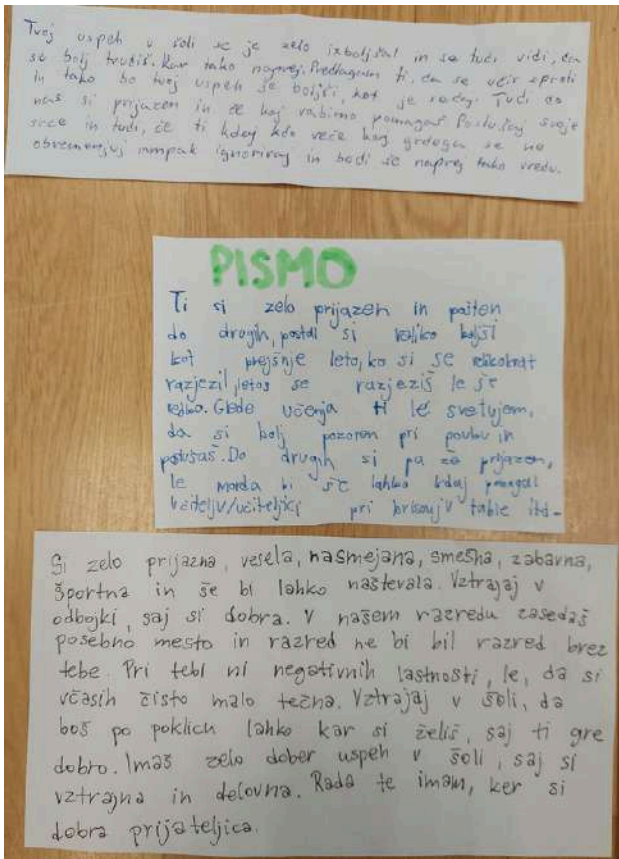 Tvoj uspeh v šoli se je zelo izboljšal in se tudi vidi, da
se bolj trudiš. Kar tako naprej. Predlagam ti, da se učiš sproti
in tako bo tvoj uspeh še boljši, kot je sedaj. Tudi do
nas si prijazen in če kaj rabimo pomagaš. Poslušaj svoje
srce in tudi, če ti kdaj kdo reče kaj grdega se ne
obremenjuj ampak ignoriraj in bodi še naprej tako vreden.
PISMO
Ti si zelo prijazen in pošten
do drugih, postal si veliko boljši
kot prejšnje leto, ko si se velikokrat
razjezil, letos se razjeziš le še
redko. Glede učenja ti le svetujem,
da si bolj pozoren pri pouku in
poslušaš. Do drugih si pa že prijazen,
le morda bi še lahko kdaj pomagal
učitelju/učiteljici pri brisanju table itd.
Si zelo prijazna, vesela, nasmejana, smešna, zabavna,
športna in še bi lahko naštevala. Vztrajaj v
odbojki, saj si dobra. V našem razredu zasedaš
posebno mesto in razred ne bi bil razred brez
tebe. Pri tebi ni negativnih lastnosti, le, da si
včasih čisto malo tečna. Vztrajaj v šoli, da
boš po poklicu lahko kar si želiš, saj ti gre
dobro. Imaš zelo dober uspeh v šoli, saj si
vztrajna in delovna. Rada te imam, ker si
dobra prijateljica.